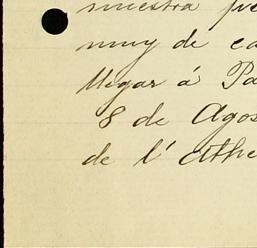 muestra
muy de
llegar á
8 de Agos
de l' Athe